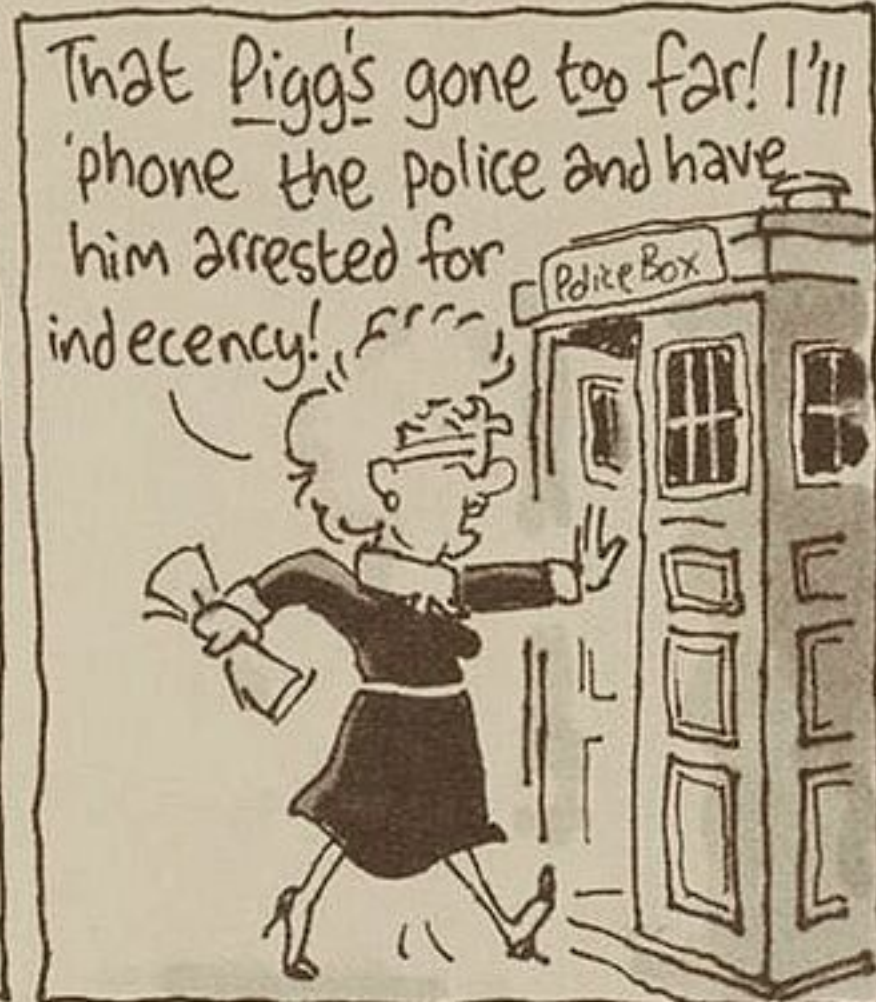 That Pigg's gone too far! I'll
'phone the police and have
him arrested for
indecency!
Police Box